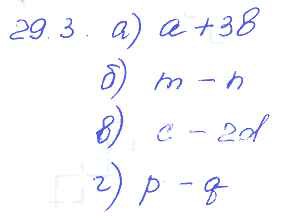 29.3. а) a + 3b
б) m - n
в) c - 2d
г) p - q